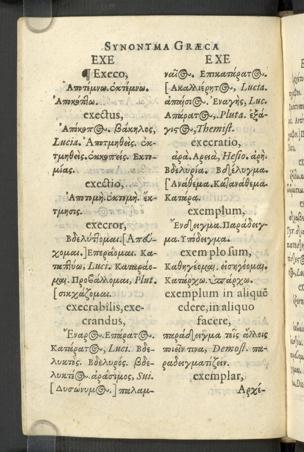 SYNONYMA GRÆCA
EXE
¶ Execo,
Ἀποτέμνω. ἐκτέμνω.
Ἀποκόπτω.
exectus,
Ἀπόκοπος. βάκηλος,
Lucia. Ἀποτμηθείς. ἐκ-
τμηθείς. ἐκκοπείς. Ἐκτο-
μίας.
exectio,
Ἀποτομή. ἐκτομή. ἔκ-
τμησις.
execror,
Βδελύττομαι. [Ἀπεύ-
χομαι.] Ἐπαράομαι. Κα-
Luci. Καταράο-
μαι. Προβάλλομαι, Plut.
[σικχάζομαι.
execrabilis, exe-
crandus,
Ἐναρος. Ἐπάρατος.
Κατάρατος, Luci. Βδε-
λυκτός. Βδελυρός. βδε-
λυκτὸς. ἀράσιμος, Sui.
[Δυσώνυμος.] παλαμ-
EXE
ναῖος. Ἐπικατάρατος.
[Ἀκαλλιέρητος, Lucia.
Ἐναγής, Luc.
Ἀπάρατος, Pluta. ἐξά-
γιστος, Themist.
execratio,
ἀρά. Ἀρεία, Hesio. ἀρή.
Βδελυρία. Βδέλυγμα.
[Ἀνάθεμα. Κατανάθεμα.
Κατάρα.
exemplum,
Ἔνδειγμα. Παράδειγ-
μα. Ὑπόδειγμα.
exemplo sum,
Καθηγέομαι. εἰσηγέομαι.
Κατάρχω. ὑπάρχω.
exemplum in aliquē
edere, in aliquo
facere,
παράδειγμα τοῖς ἄλλοις
ποιεῖν τινα, Demost. πα-
ραδειγματίζειν.
exemplar,
Ἀρχέ-